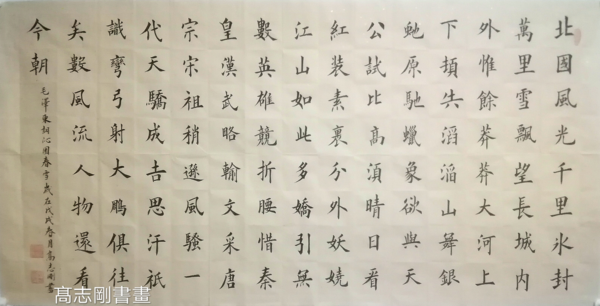 北國風光千里氷封
萬里雪飄望長城内
外惟餘莽莽大河上
下頓失滔滔山舞銀
虵原馳蠟象欲與天
公試比高須晴日看
紅裝素裹分外妖嬈
江山如此多嬌引無
數英雄競折腰惜秦
皇漢武略輸文采唐
宗宋祖稍遜風騷一
代天驕成吉思汗祇
識彎弓射大鵰俱往
矣數風流人物還看
今朝
毛澤東詞沁園春雪歲在戊戌春月高志剛書
髙志剛書畫